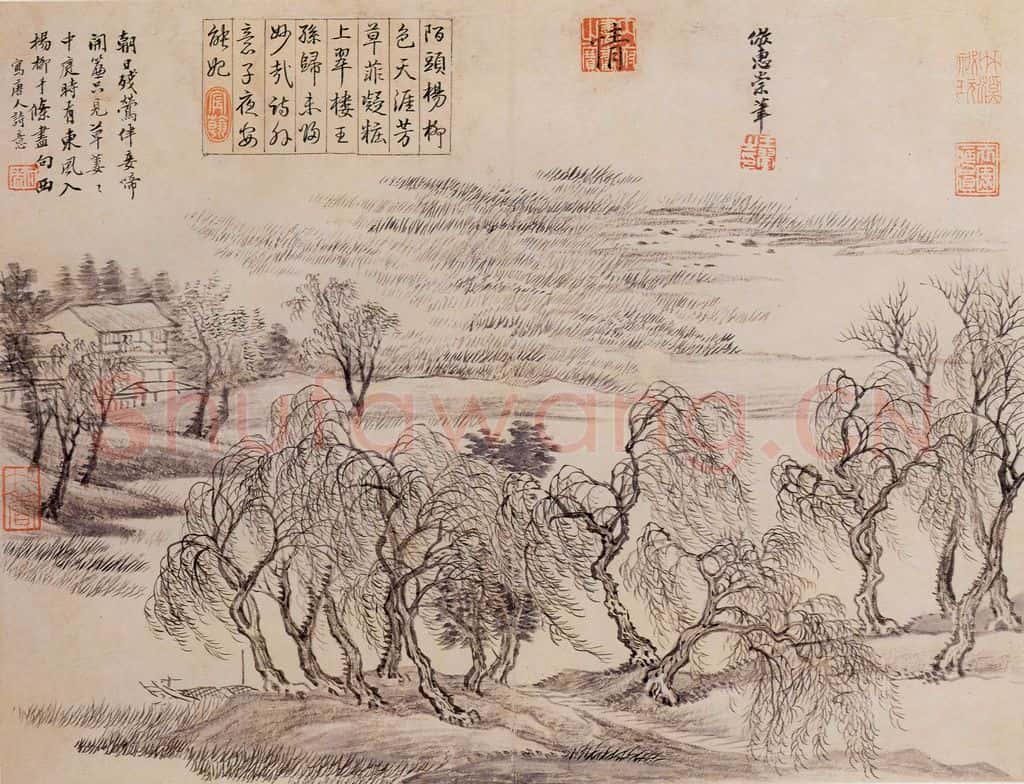 倣惠崇筆
陌頭楊柳
色天涯芳
草菲凝粧
上翠樓王
孫歸未歸
妙哉詩外
意子夜安
能妃
朝日殘鶯伴妾啼
開簾只見草萋〻
中庭時有東風入
楊柳千條盡向西
寫唐人詩意
Shufawang.CN